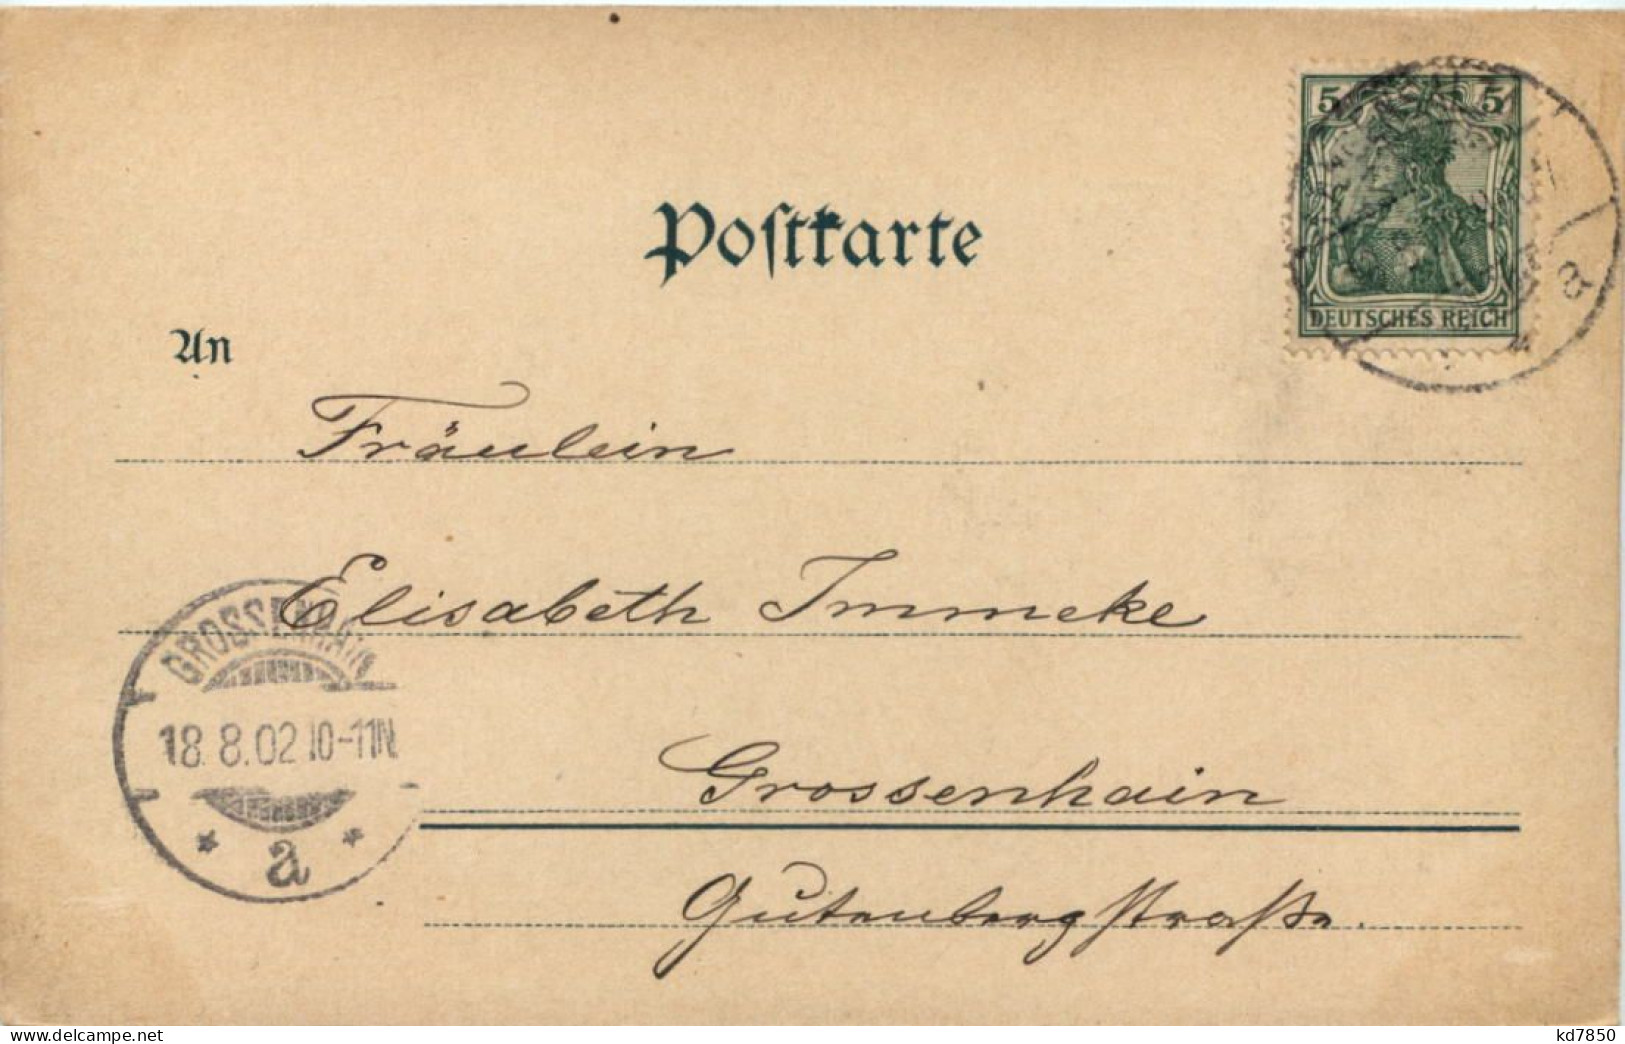 5 5
DEUTSCHES REICH
a
Postkarte
An
Fräulein
Elisabeth Immeke
GROSSENHAIN
18.8.02.10-11N
* a *
Grossenhain
Gutenbergstraße.
www.delcampe.net
kd7850